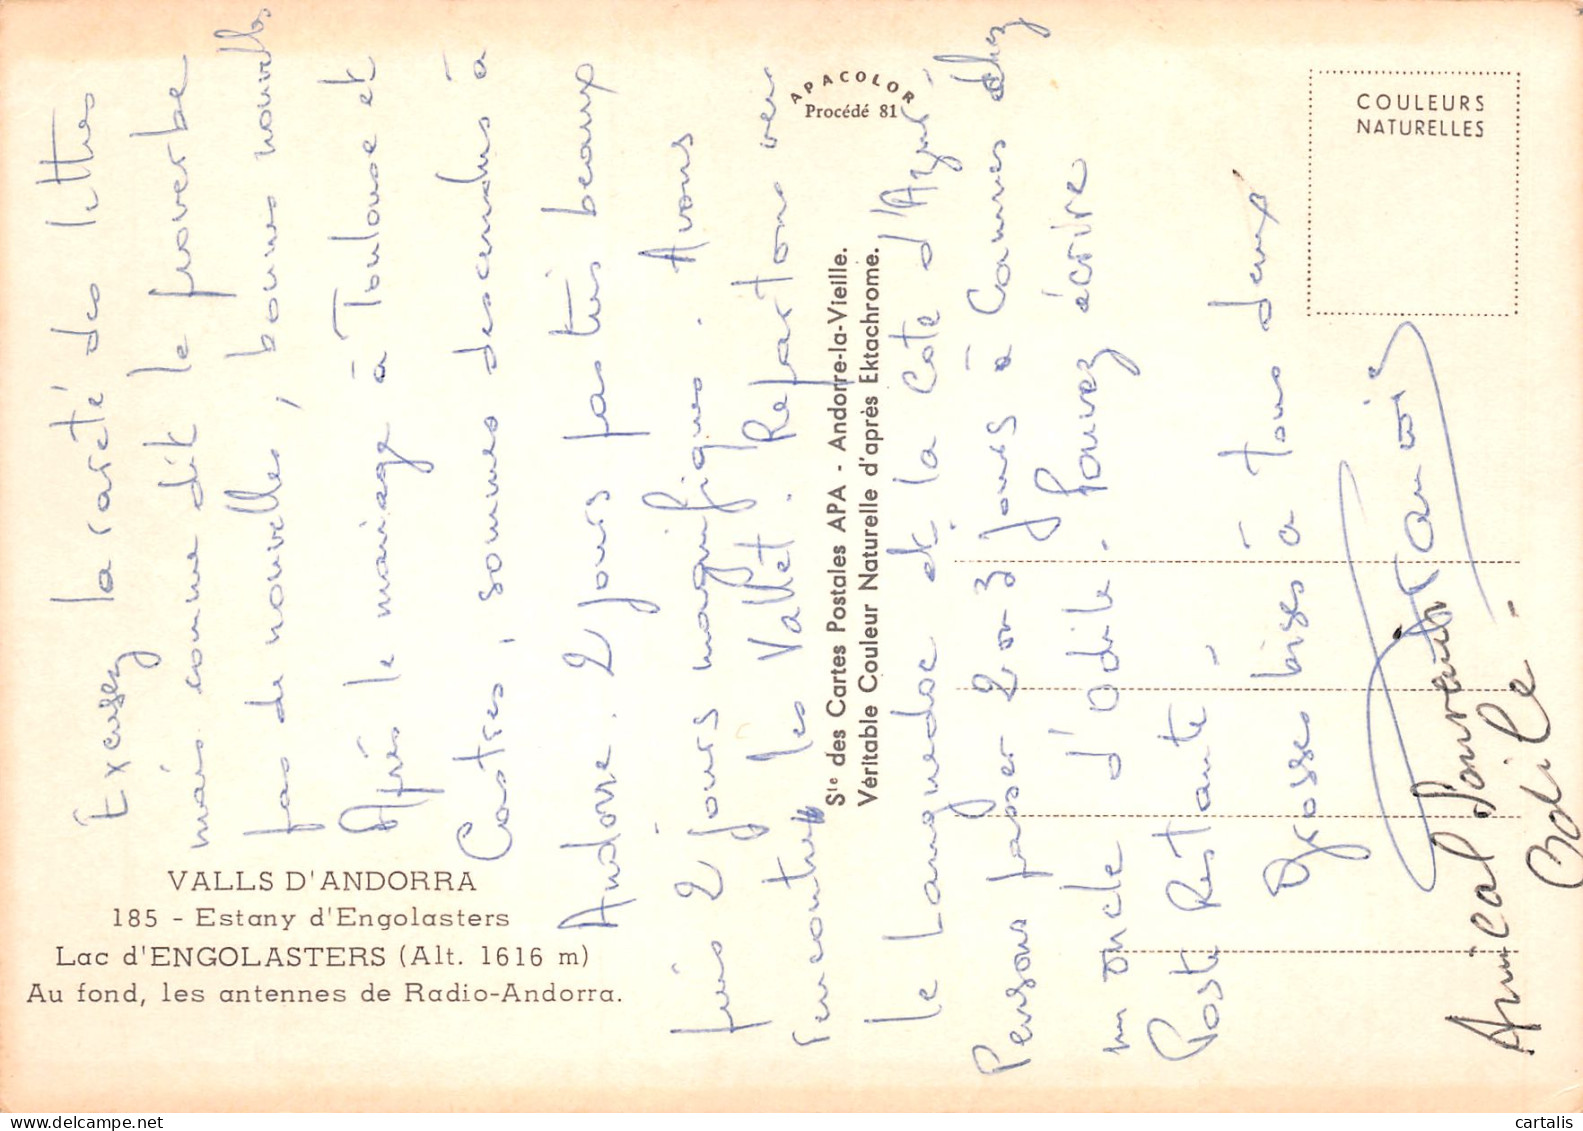 APACOLOR
Procédé 81
COULEURS
NATURELLES
VALLS D'ANDORRA
185 - Estany d'Engolasters
Lac d'ENGOLASTERS (Alt. 1616 m)
Au fond, les antennes de Radio-Andorra.
Sté des Cartes Postales APA - Andorre-la-Vieille.
Véritable Couleur Naturelle d'après Ektachrome.
Excusez la rareté des lettres
mais comme dit le proverbe
pas de nouvelles, bonnes nouvelles
Après le mariage à Toulouse et
Castres, sommes descendus à
Andorre. 2 jours pas très beaux
puis 2 jours magnifiques. Avons
rencontré les Vallet. Repartons vers
le Languedoc et la Cote d'Azur.
Pensons passer 2 ou 3 jours à Cannes chez
un oncle d'Odile. Pouvez écrire
Poste Restante.
Grosses bises à tous deux
Amical Souvenir
Odile.
cartalis